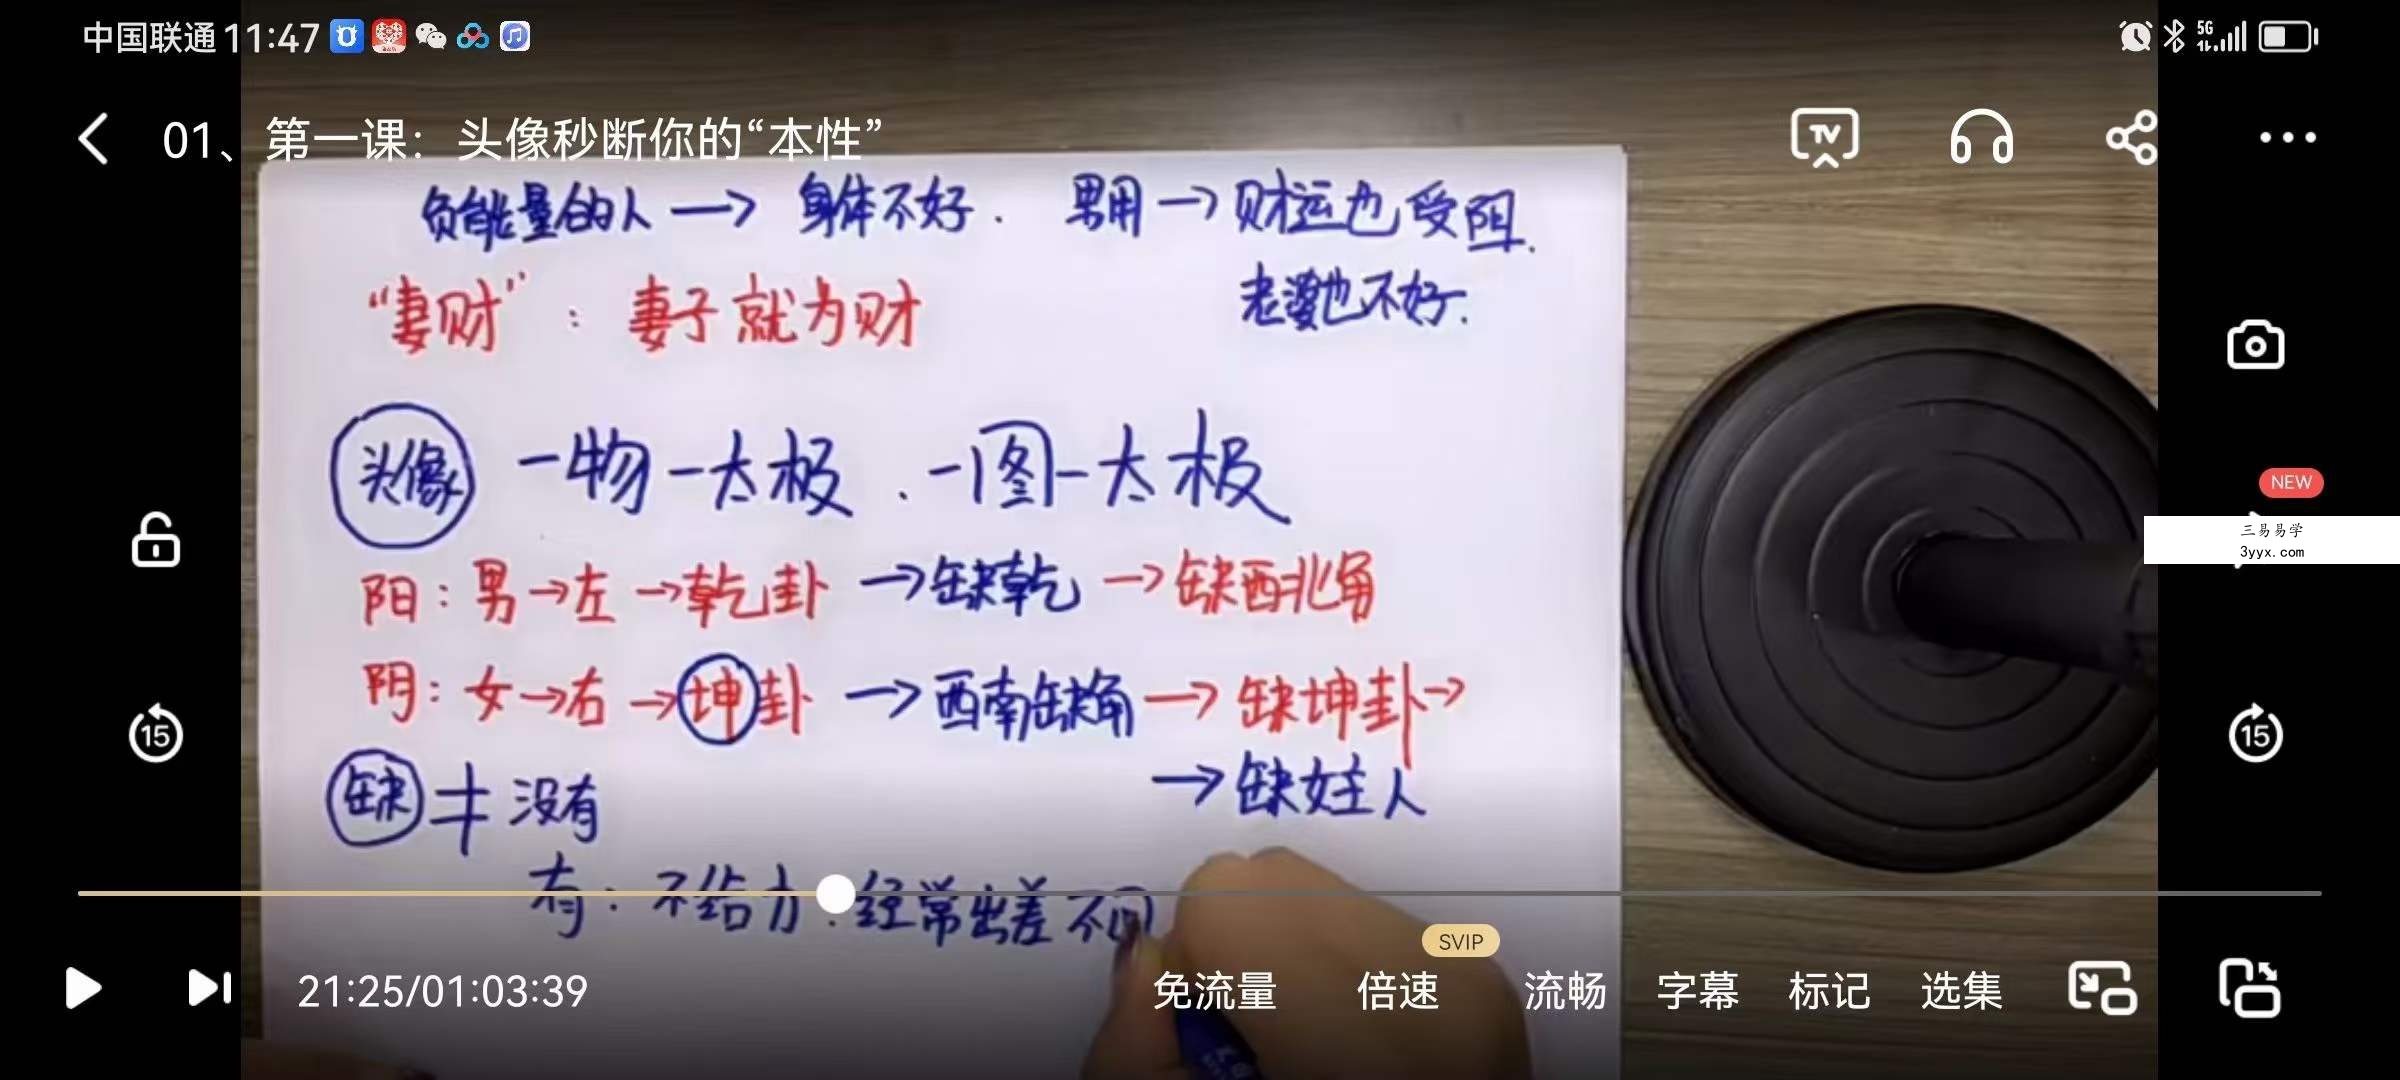 中国联通 11:47
5G
01、第一课：头像秒断你的“本性”
TV
负能量的人 → 身体不好. 男用 → 财运也受阻.
老婆也不好.
“妻财”：妻子就为财
头像 一物一太极. 一图一太极
NEW
三易易学
3yyx.com
阳：男→左→乾卦→缺乾→缺西北角
阴：女→右→坤卦→西南缺角→缺坤卦→
→缺女主人
缺≠没有
有：不给力.经常出差 不回
15
15
SVIP
21:25/01:03:39 免流量 倍速 流畅 字幕 标记 选集